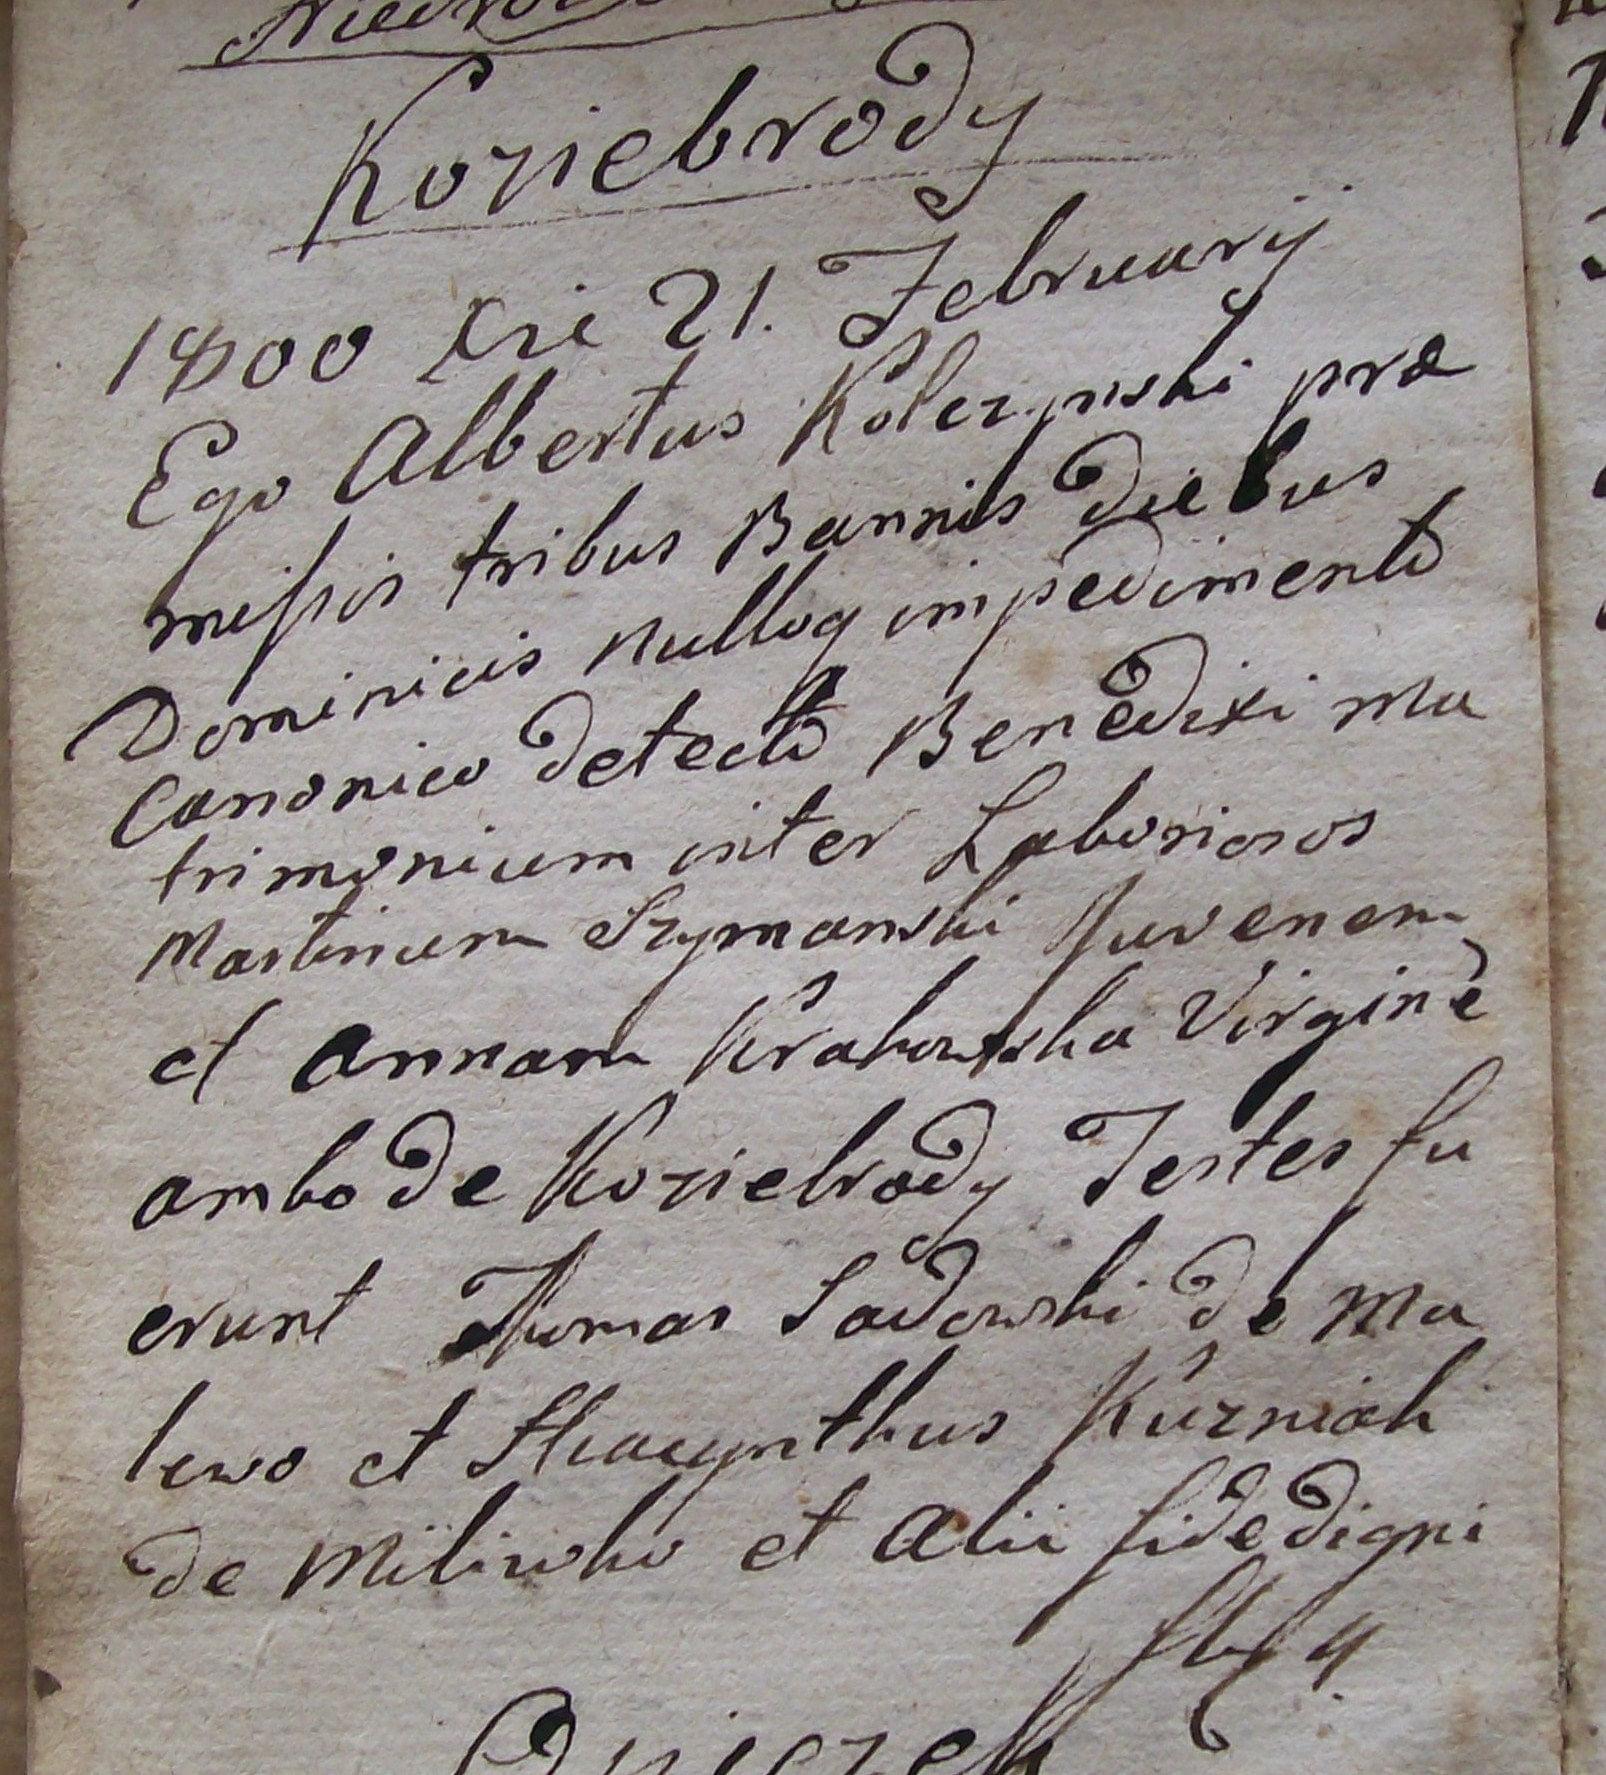 Koziebrody
1800 Die 21. Februarij
Ego Albertus Kolczynski præ
missis tribus Bannis Diebus
Dominicis nulloq impedimento
Canonico detecto Benedixi Ma
trimonium inter Laboriosos
Martinum Szymanski Juvenem
et Annam Krakowska Virginē
ambo de Koziebrody Testes fu
erunt Thomas Sadowski de Ma
lewo et Hyacynthus Kuzniak
de Milewko et Alii fide digni